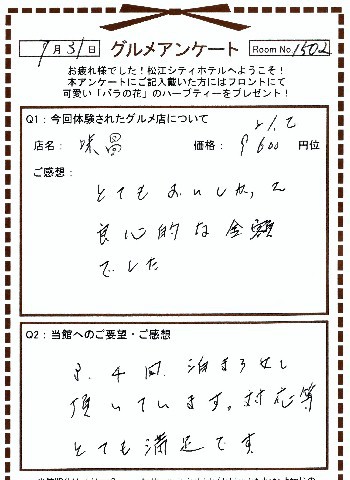 7月31日 グルメアンケート Room No.1502
お疲れ様でした！松江シティホテルへようこそ！
本アンケートにご記入戴いた方にはフロントにて
可愛い「バラの花」のハーブティーをプレゼント！
Q1：今回体験されたグルメ店について
店名： 価格： 600 円位
ご感想：
とてもおいしかった
良心的な金額
でした
Q2：当館へのご要望・ご感想
4回 泊まらせ
頂いています。対応等
とても満足です